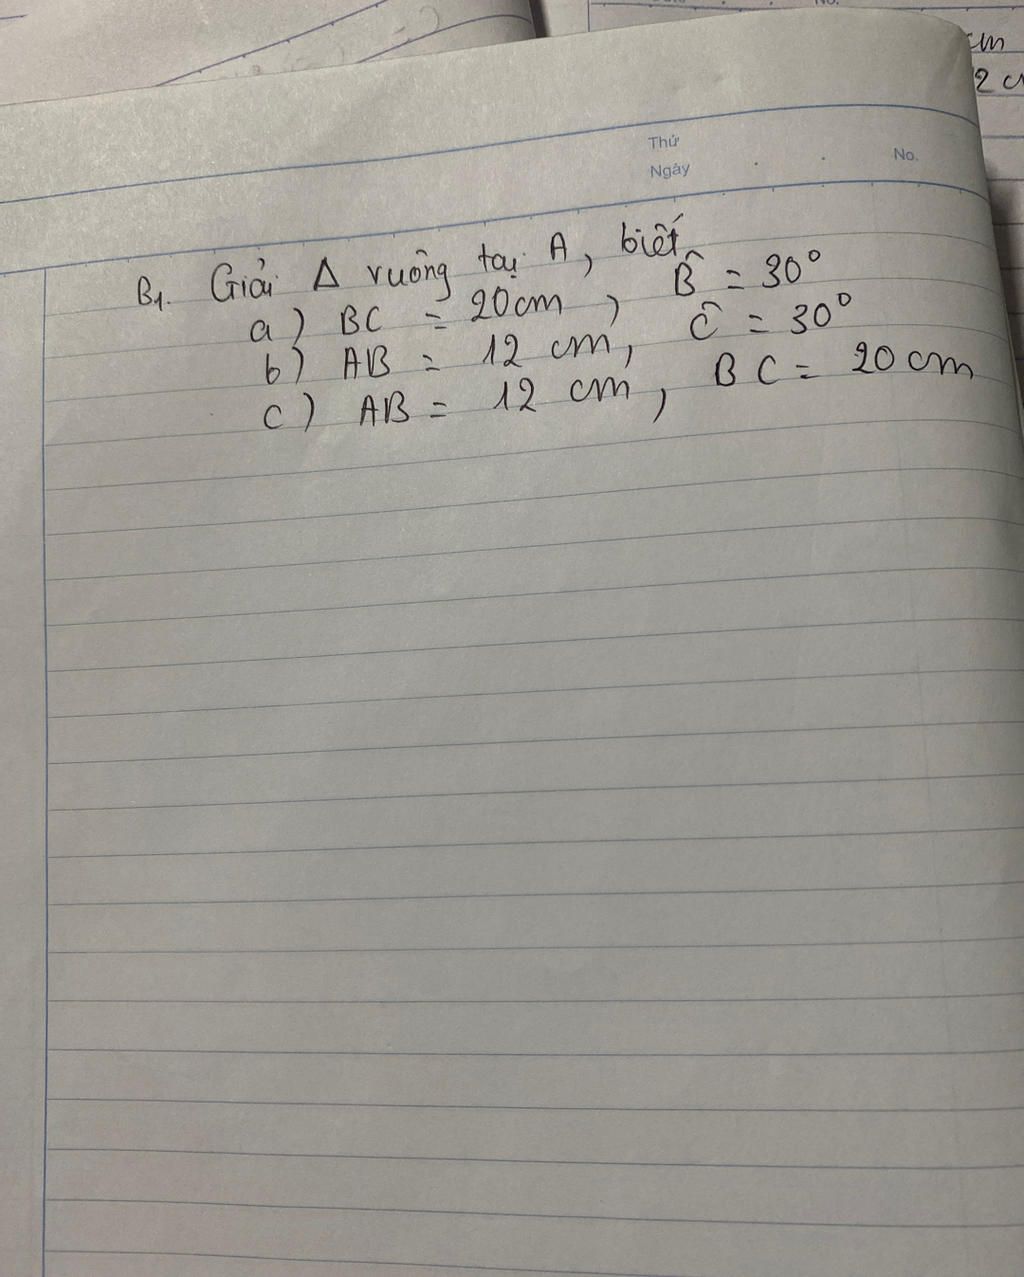 cm
2 c
Thứ
Ngày
No.
B1. Giải Δ vuông tại A, biết
a) BC = 20cm, B̂ = 30°
b) AB = 12 cm, Ĉ = 30°
c) AB = 12 cm, BC = 20 cm